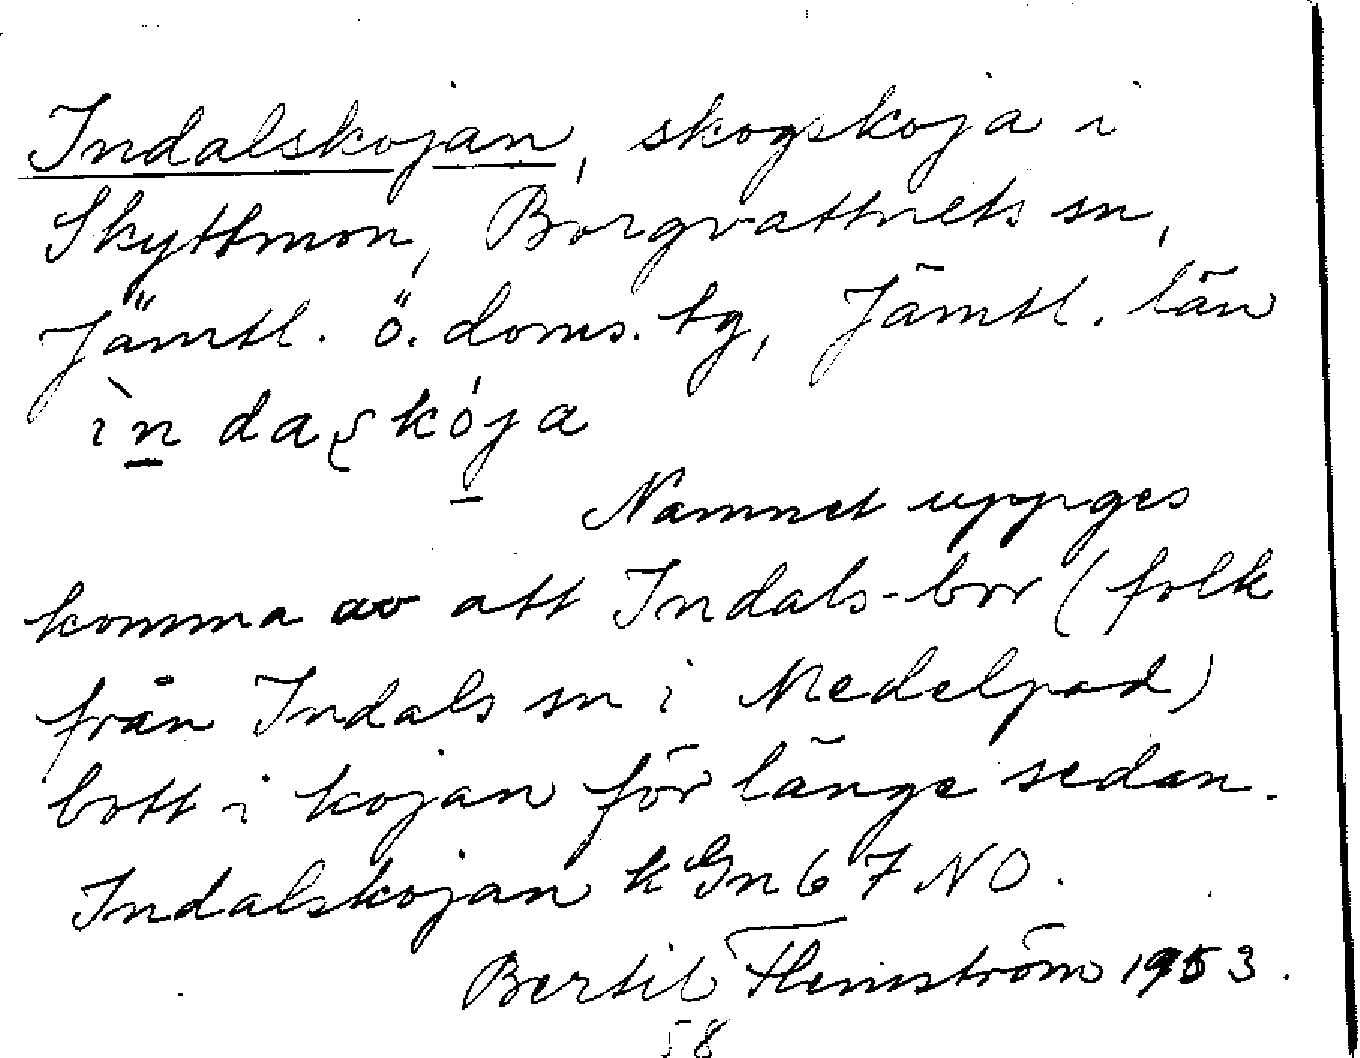 Indalskojan, skogskoja i
Skyttmon, Borgvattnets sn,
Jämtl. ö. doms. tg, Jämtl. län
ìn daʂkója
Namnet uppges
komma av att Indals-bor (folk
från Indals sn i Medelpad)
bott i kojan för länge sedan.
Indalskojan k Gn 67 NO.
Bertil Flemström 1953.
58